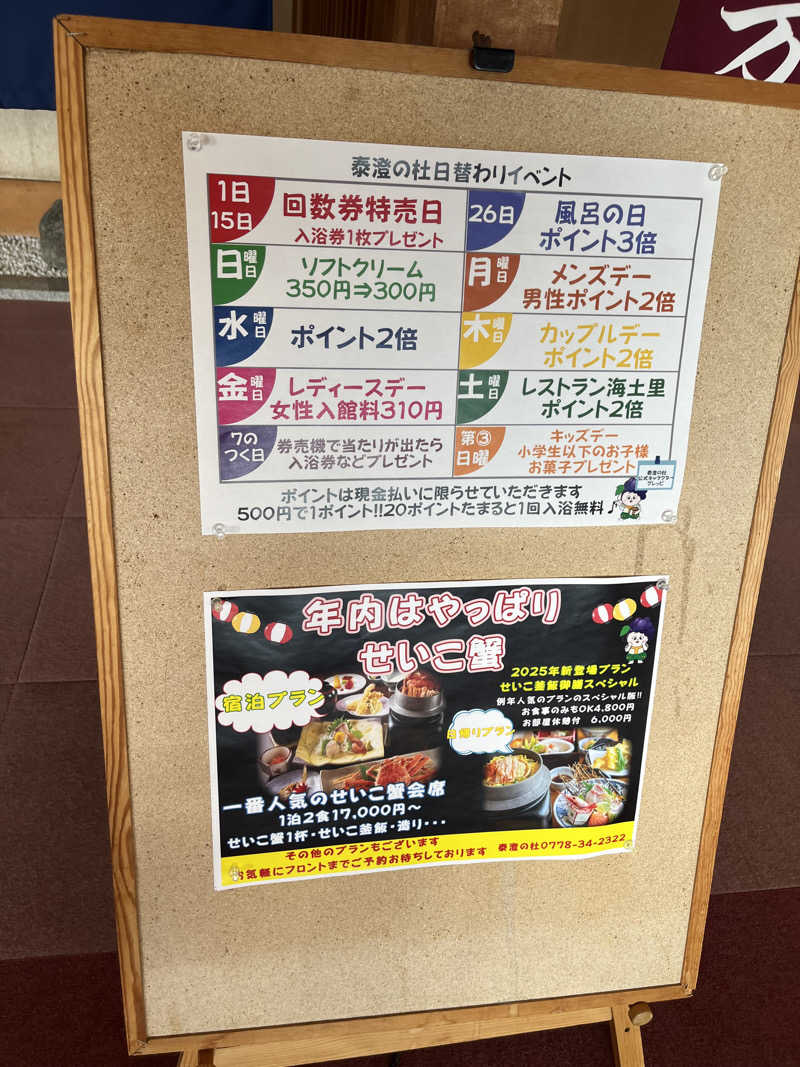 万
泰澄の杜日替わりイベント
1日
15日
回数券特売日
入浴券1枚プレゼント
26日
風呂の日
ポイント3倍
日曜日
ソフトクリーム
350円⇒300円
月曜日
メンズデー
男性ポイント2倍
水曜日
ポイント2倍
木曜日
カップルデー
ポイント2倍
金曜日
レディースデー
女性入館料310円
土曜日
レストラン海土里
ポイント2倍
7の
つく日
券売機で当たりが出たら
入浴券などプレゼント
第③
日曜
キッズデー
小学生以下のお子様
お菓子プレゼント
泰澄の杜
公式キャラクター
ポイントは現金払いに限らせていただきます
500円で1ポイント!!20ポイントたまると1回入浴無料♪
年内はやっぱり
せいこ蟹
宿泊プラン
2025年新登場プラン
せいこ釜飯御膳スペシャル
例年人気のプランのスペシャル版!!
お食事のみもOK4,800円
お部屋休憩付 6,000円
日帰りプラン
一番人気のせいこ蟹会席
1泊2食17,000円～
せいこ蟹1杯・せいこ釜飯・造り・・・
その他のプランもございます
お気軽にフロントまでご予約お待ちしております 泰澄の杜0778-34-2322